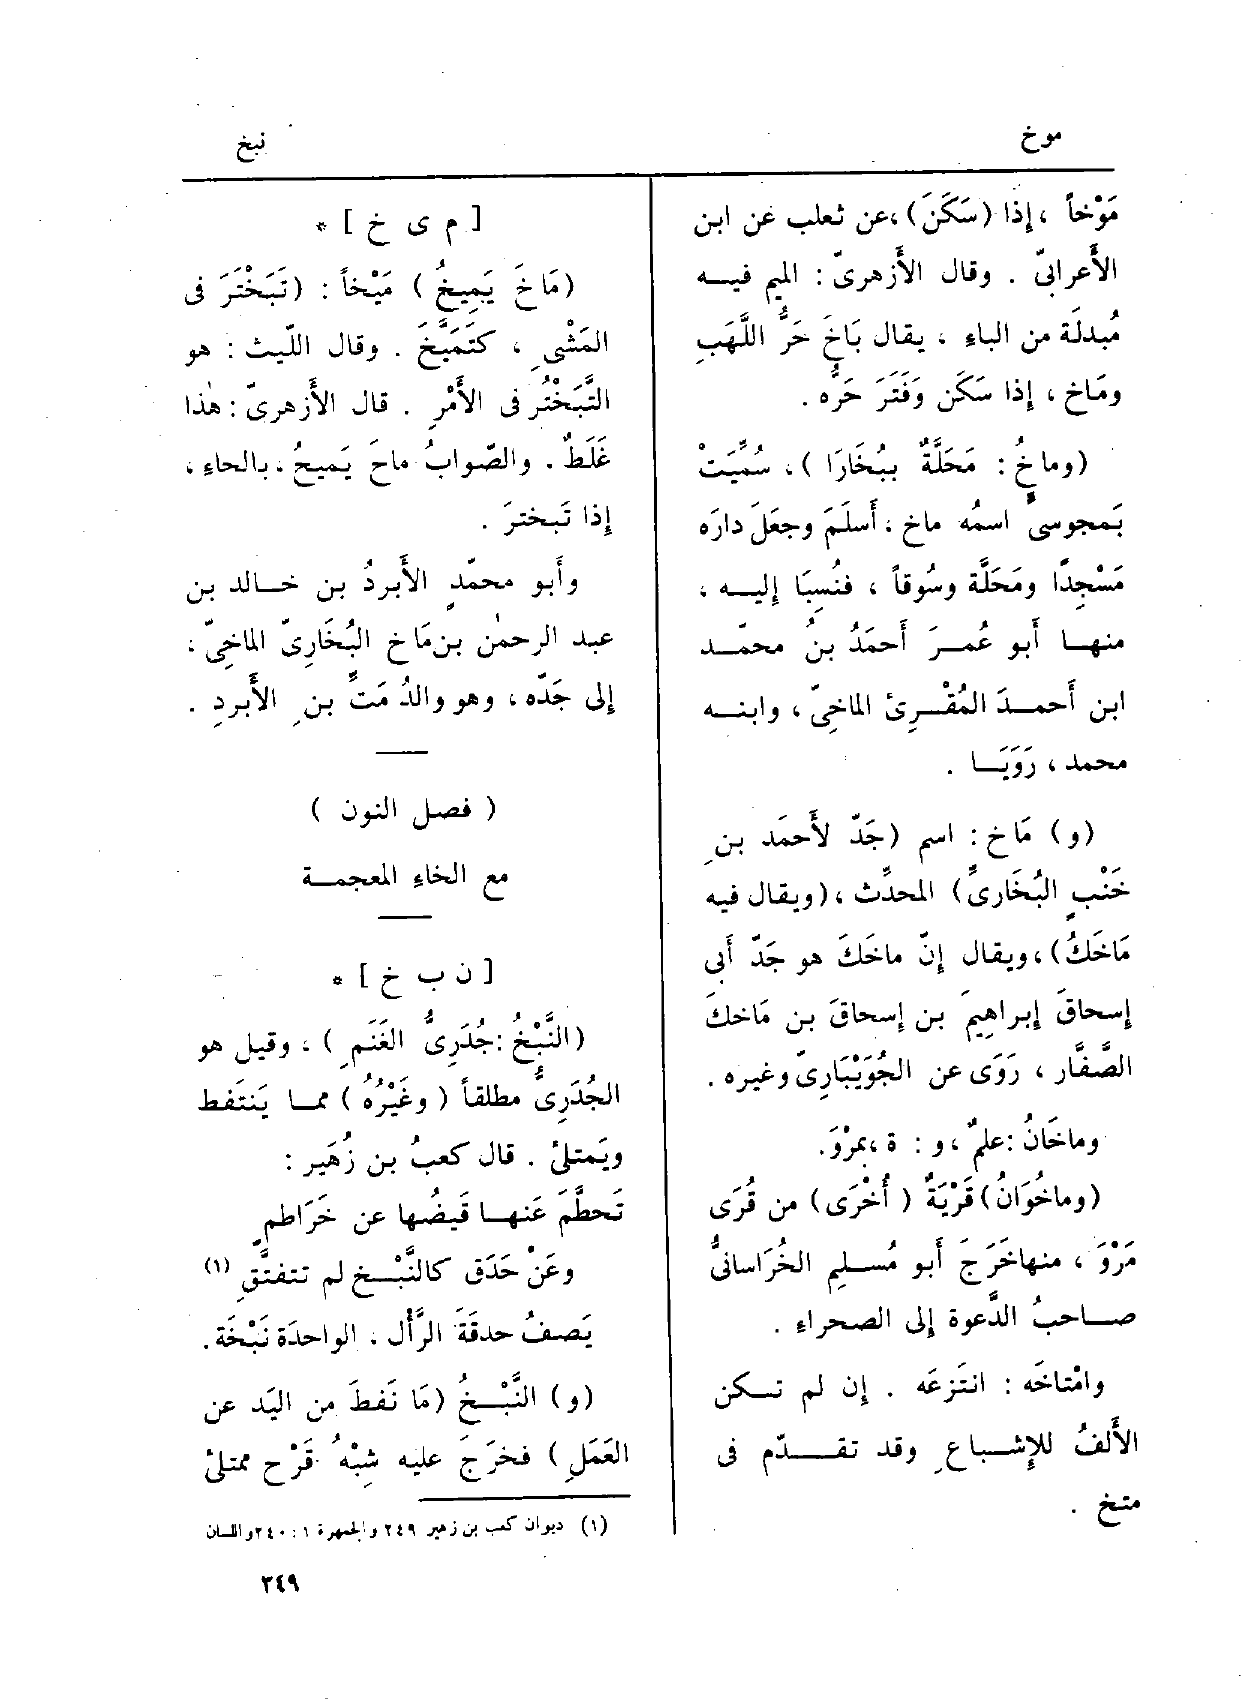 موخ
نبخ
مَوْخاً ، إِذا (سَكَنَ) ، عن ثعلب عن ابن
الأَعرابىّ . وقال الأَزهرىّ : الميم فيـه
مُبدلَة من الباءِ ، يقال بَاخَ حَرُّ اللَّهَبِ
ومَاخ ، إِذا سَكَن وَفَتَرَ حَرُّه .
(وماخُ : مَحَلَّةٌ ببُخَارَا ) ، سُمِّيَتْ
بَمجوسىّ اسمُه ماخ ، أَسلَمَ وجعَلَ دارَه
مَسْجِدًا ومَحَلَّة وسُوقاً ، فنُسِبَا إِليــه ،
منهــا أَبو عُمـرَ أَحمَدُ بنُ محمّـد
ابن أَحمـدَ المُقْـرِئ الماخِىّ ، وابنــه
محمد ، رَوَيَــا .
(و) مَاخ : اسم (جَدّ لأَحمَد بنِ
خَنْبٍ البُخَارىِّ) المحدِّث ، (ويقال فيه
مَاخَكُ) ، ويقال إِنّ ماخَكَ هو جَدّ أَبى
إِسحاقَ إِبراهِيمَ بن إِسحاقَ بن مَاخكَ
الصَّفَّار ، رَوَى عن الجُوَيْبَارىّ وغيره .
وماخَانُ : علمٌ ، و : ة ، بمرْوَ.
(وماخُوَانُ) قَرْيَةٌ ( أُخْرَى) من قُرَى
مَرْوَ ، منها خَرَجَ أَبو مُسـلِم الخُرَاسانىُّ
صـاحبُ الدَّعوة إِلى الصحراءِ .
وامْتاخَه : انتَزعَه . إِن لم تـكن
الأَلفُ للإِشـباعِ وقد تقــدّم فى
متخ .
[ م ى خ ] *
(مَاخَ يَمِيخُ ) مَيْخاً : (تَبَخْتَرَ فى
المَشْىِ ، كتَمَيَّخَ . وقال اللّيث : هو
التَّبَخْتُر فى الأَمْرِ . قال الأَزهرىّ : هٰذا
غَلَطٌ . والصّوابُ ماحَ يَميحُ ، بالحاءِ ،
إِذا تَبختَرَ .
وأَبو محمّدٍ الأَبردُ بن خـالد بن
عبد الرحمٰن بن مَاخ البُخَارىّ الماخِىّ ؛
إِلى جَدّه ، وهو والدُ مَتِّ بنِ الأَبردِ .
( فصل النون )
مع الخاءِ المعجمـة
[ ن ب خ ] *
(النَّبْخُ : جُدَرِىُّ الغَنَمِ ) ، وقيل هو
الجُدَرِىُّ مطلقاً ( وغَيْرُهُ ) ممـا يَنتَفط
ويَمتلئ . قال كعبُ بن زُهَير :
تَحطَّمَ عَنهـا قَيضُها عن خَرَاطمٍ
وعَنْ حَدَق كالنَّبْـخ لم تتفتَّقِ (١)
يَصفُ حدقَةَ الرَّأْل . الواحدَة نَبْخَة .
(و) النَّبْـخُ (مَا نَفطَ من اليَد عن
العَمَلِ ) فخرَجَ عليه شِبْهُ قَرْح ممتلئ
(١) ديوان كعب بن زهير ٢٤٩ والجمهرة ١ : ٢٤٠ واللسان
٣٤٩